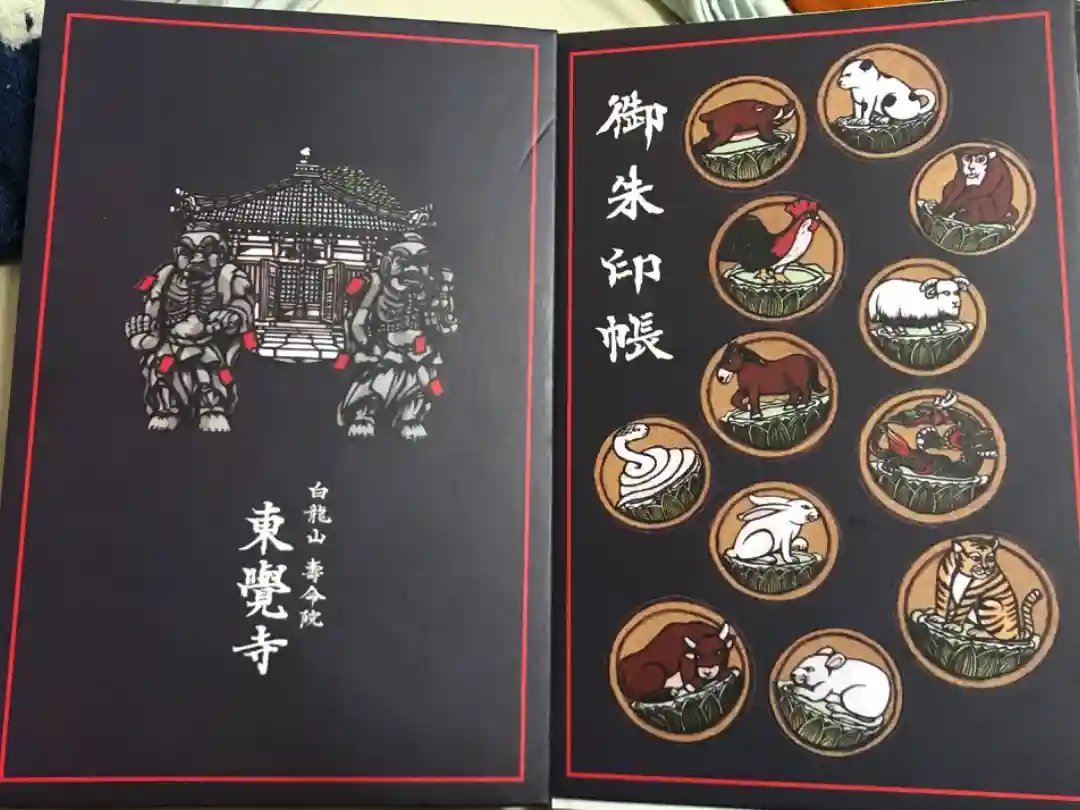 御朱印帳
白龍山 壽命院
東覺寺